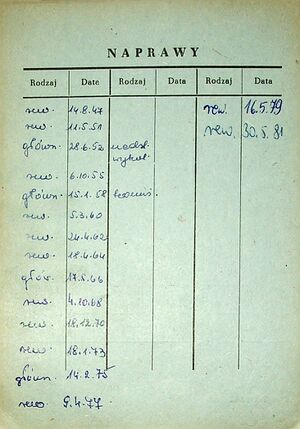 NAPRAWY
Rodzaj Date Rodzaj Data Rodzaj Data
rew. 14.8.47 rew. 16.5.79
rew. 11.5.51 rew. 30.5.81
główn. 28.6.52
rew. 6.10.55
główn. 15.1.58
rew. 5.3.60
rew. 24.4.62
rew. 18.4.64
głów. 17.5.66
rew. 4.10.68
rew. 18.12.70
rew. 18.1.73
główn. 14.2.75
rew 9.4.77